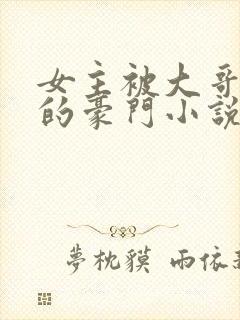 女主被大哥
的豪門小說
夢枕貘 雨依